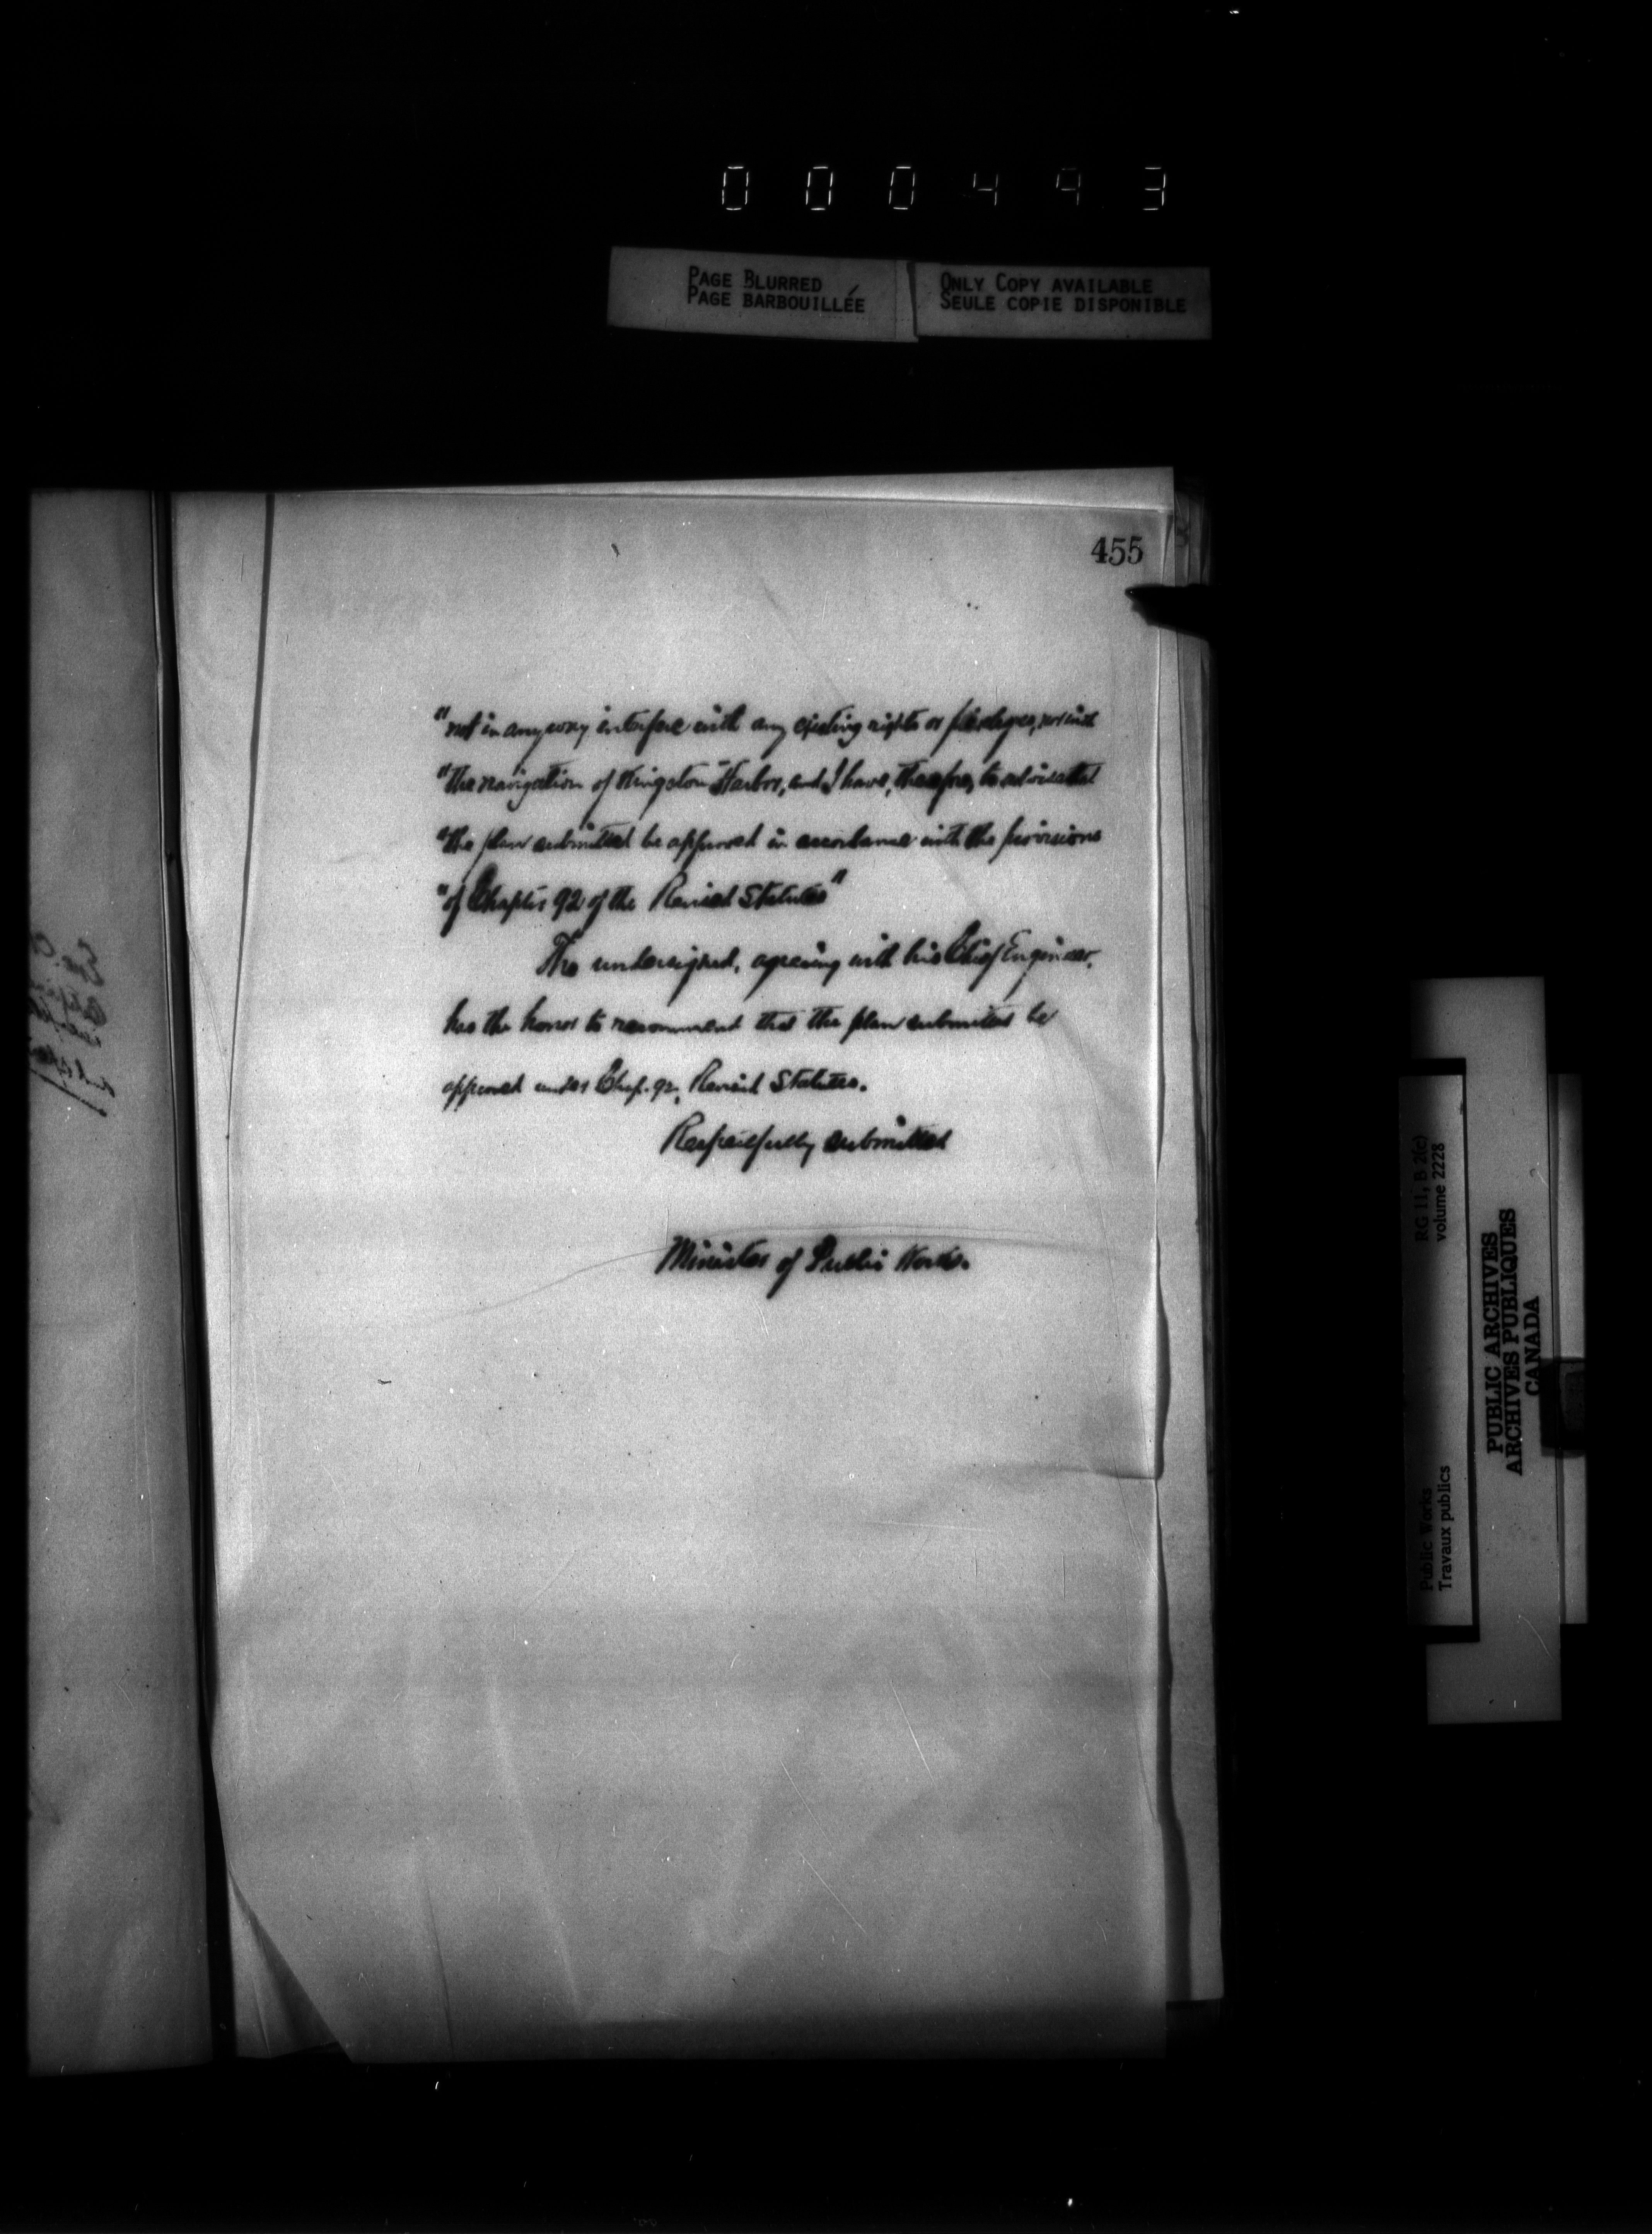 000493
PAGE BLURRED
PAGE BARBOUILLÉE
ONLY COPY AVAILABLE
SEULE COPIE DISPONIBLE
455
"not in any way interfere with any existing rights or privileges, nor with
"the navigation of Kingston Harbor, and I have, therefore, to advise that
"the plan submitted be approved in accordance with the provisions
"of Chapter 92 of the Revised Statutes"
The undersigned, agreeing with his Chief Engineer,
has the honor to recommend that the plan submitted be
approved under Chap. 92, Revised Statutes.
Respectfully submitted
Minister of Public Works.
RG 11, B 2(c)
volume 2228
Public Works
Travaux publics
PUBLIC ARCHIVES
ARCHIVES PUBLIQUES
CANADA